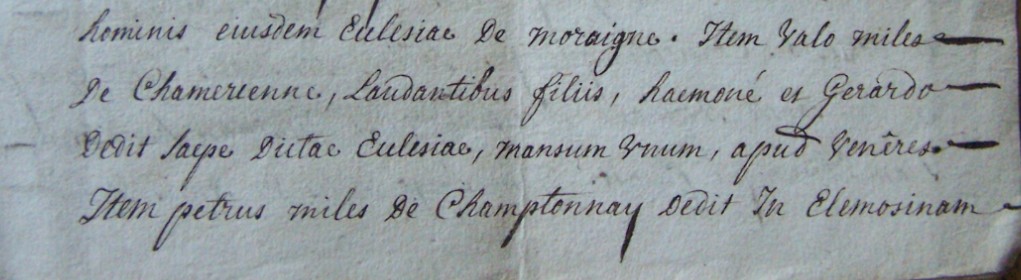 hominis eiusdem Eclesiae De moraigne. Item Valo miles
De Chamerienne, Laudantibus filiis, haemoné et Gerardo
Dedit saepe Dictae Eclesiae, mansum Vnum, apud Venêres.
Item petrus miles De Champtonnay Dedit In Elemosinam